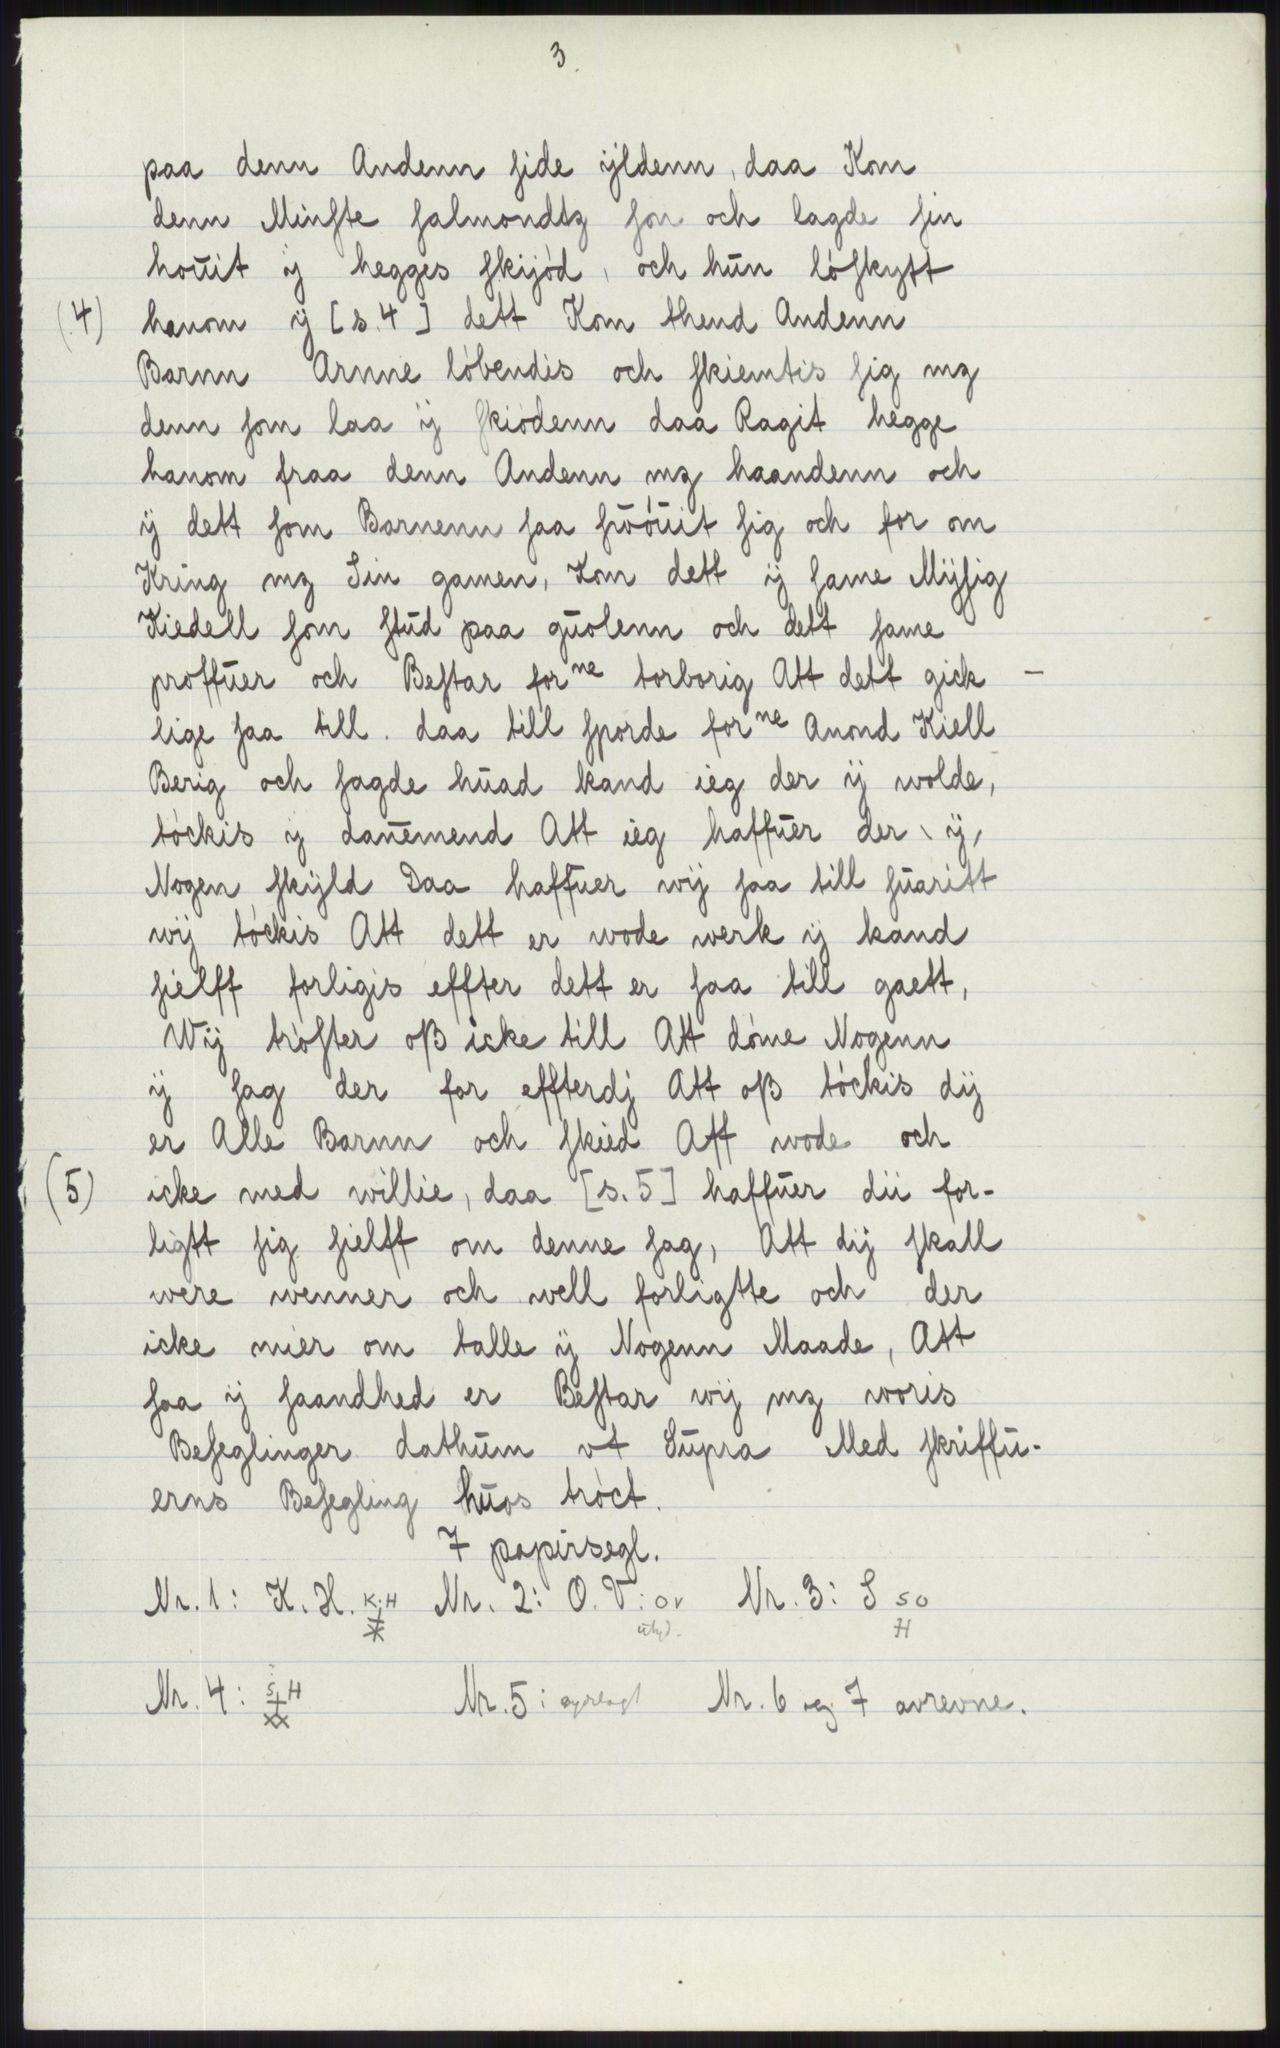 3.
paa denn Andenn ſide ÿldenn, daa Kom
denn Minſte ſalmondtz ſon och lagde ſin
houit ÿ hegges ſkijód, och hun lóſkytt
(4) hanom ÿ [s.4] dett Kom thend Andenn
Barnn Arnne lóbendis och ſkiemtis ſig mz
denn ſom laa ÿ ſkiódenn daa Ragit hegge
hanom fraa denn Andenn mz haandenn och
ÿ dett ſom Barnenn ſaa ſuóuit ſig och for om
Kring mz Sin gamen, Kom dett ÿ ſame Mÿſig
Kiedell ſom ſtud paa guolenn och dett ſame
proffuer och Beſtar forne torborig Att dett gick –
lige ſaa till. daa till ſporde forne Anond Kiell
Berig och ſagde huad kand ieg der ÿ wolde,
tóckis ÿ danemend Att ieg haffuer der ÿ,
Nogen ſkÿld Daa haffuer wÿ ſaa till ſuaritt
wÿ tóckis Att dett er wode werk ÿ kand
ſielff forligis effter dett er ſaa till gaett,
Wÿ tróſter oß icke till Att dóme Nogenn
ÿ ſag der for effterdj Att oß tóckis dÿ
er Alle Barnn och ſkied Aff wode och
(5) icke med willie, daa [s.5] haffuer dii for-
ligtt ſig ſielff om denne ſag, Att dÿ ſkall
were wenner och well forligtte och der
icke mier om talle ÿ Nogenn Maade, Att
ſaa ÿ ſaandhed er Beſtar wÿ mz woris
Beſeglinger dathum vt Supra Med ſkriffu-
erns Beſegling huos tróct.
7 papirsegl.
Nr. 1: K. H. K H Nr. 2: O. V: OV Nr. 3: S SO
H
Nr. 4: S H Nr. 5: Nr. 6 og 7 avrevne.